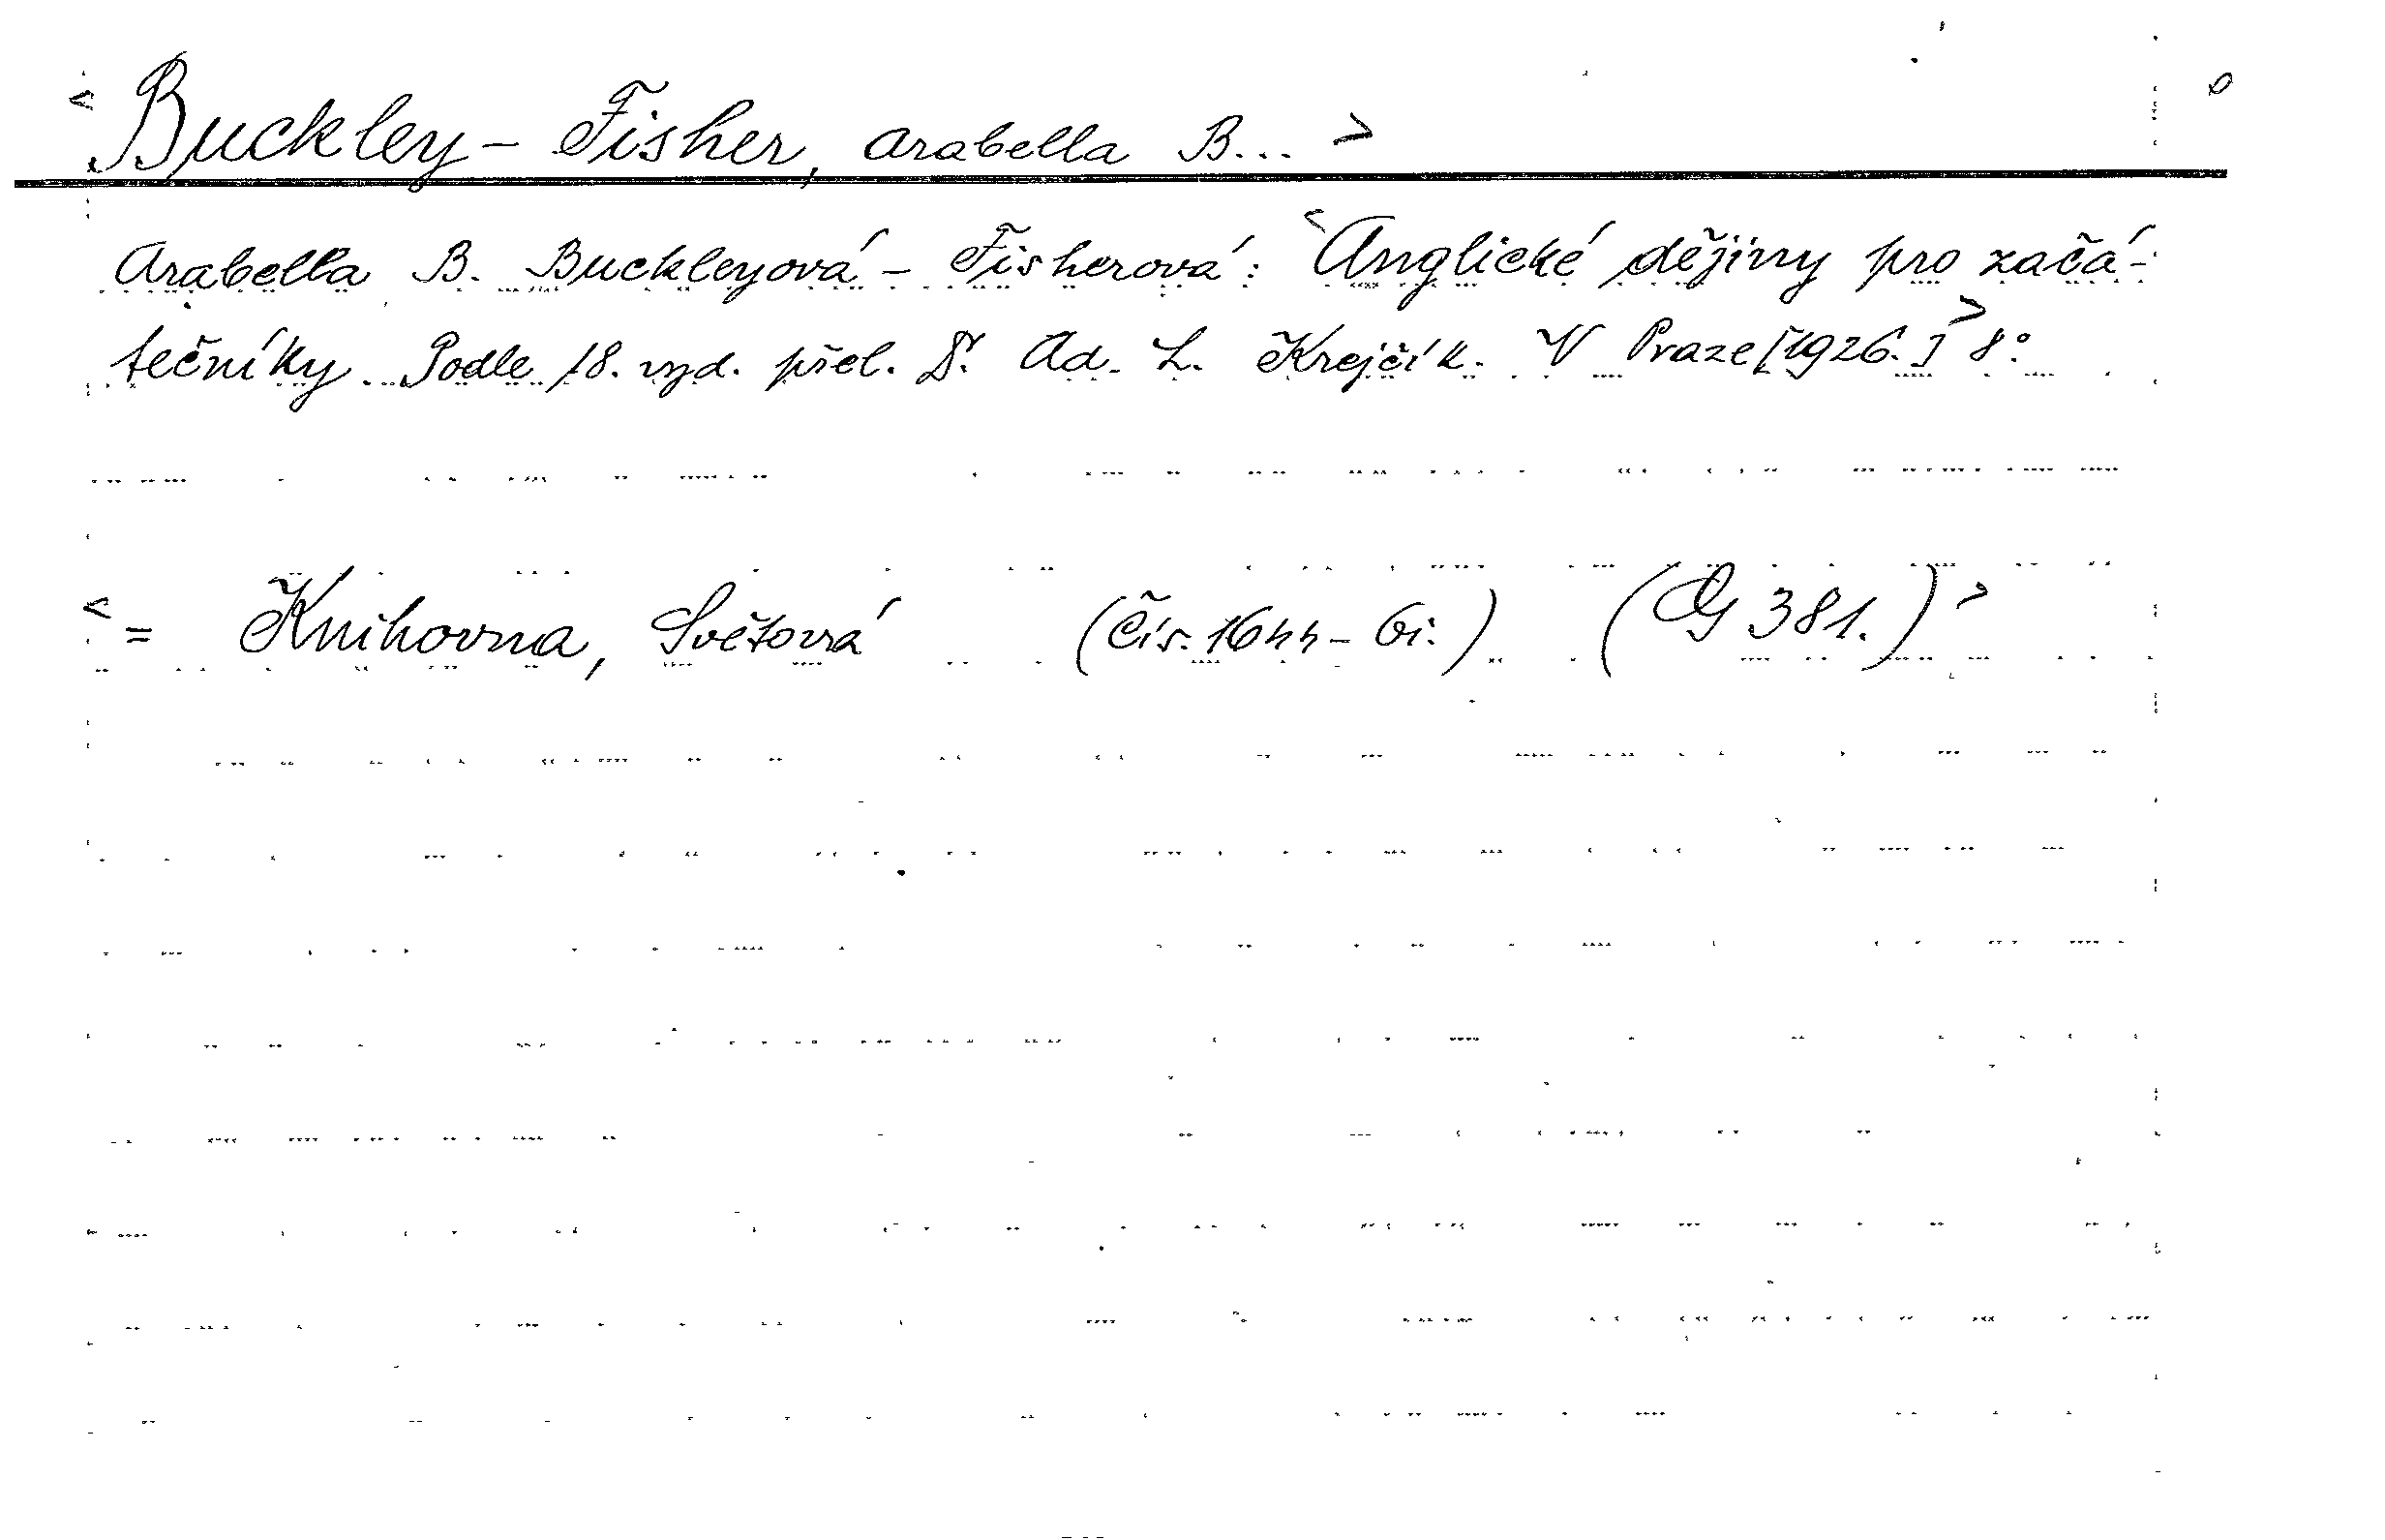 <Buckley - Fisher, Arabella B... >
Arabella B. Buckleyová - Fisherová: <Anglické dějiny pro začá-
tečníky. Podle 18. vyd. přel. Dr. Ad. L. Krejčík. V Praze [1926.]> 8°.
<= Knihovna, Světová (Čís. 1644 - (G 381.)>